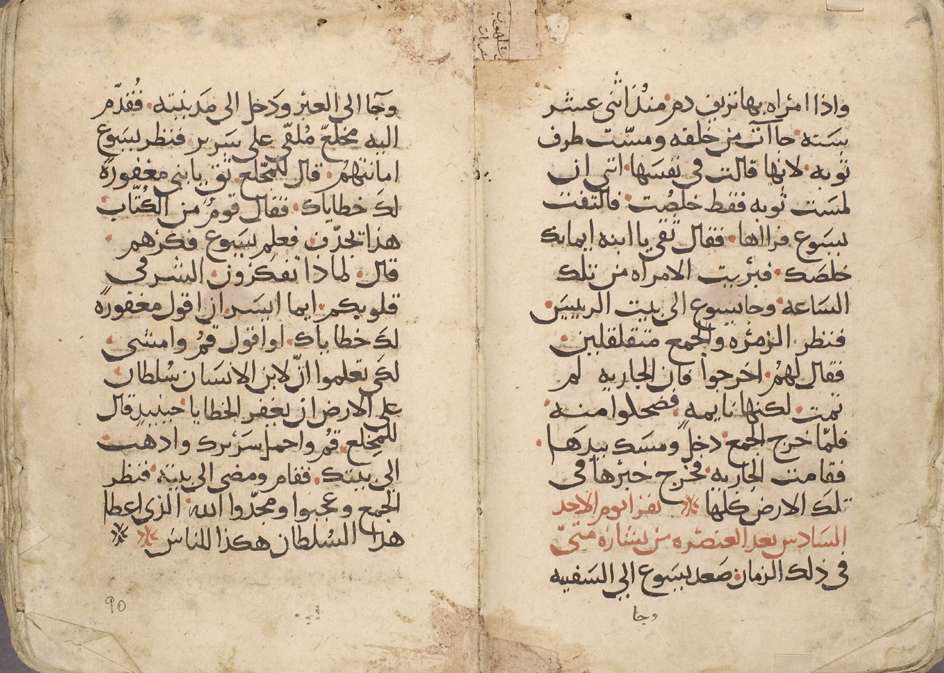 واذا امراه بها نزيف دم منذ اثنى عشر
سنه جاات من خلفه ومسّت طرف
ثوبه لانها قالت فى نفسها انني ان
لمست ثوبه فقط خلصت فالتفت
يسوع فرااها فقال ثقى يا ابنه ايمانك
خلصك فبريت الامراه من تلك
الساعه وجا يسوع الى بيت الرييس
فنظر الزمره والجمع متقلقلين
فقال لهم اخرجوا فان الجاريه لم
تمت لكنها نايمه فضحكوا منه
فلمّا خرج الجمع دخل ومسك بيدها
فقامت الجاريه فخرج خبرها فى
تلك الارض كلها تقرا يوم الاحد
السادس بعد العنصره من بشاره متىّ
فى ذلك الزمان صعد يسوع الى السفينه
وجا
وجا الى العبر ودخل الى مدينته فقدّم
اليه مخلع مُلقى على سرير فنظر يسوع
امانتهم قال للمخلع ثق يا بنى مغفورة
لك خطاياك فقال قوم من الكُتّاب
هذا يجدّف فعلم يسوع فكرهم
قال لماذا تفكرون الشر فى
قلوبكم ايما ايسر ان اقول مغفورة
لك خطاياك او اقول قم وامشى
لكى تعلموا انّ لابن الانسان سُلطان
على الارض ان يغفر الخطايا حينيدٍ قال
للمخلع قم واحمل سريرك واذهب
الى بيتك فقام ومضى الى بيته فنظر
الجمع وعجبوا ومجدّوا الله الذى اعطا
هذا السُلطان هكذا للناس
90